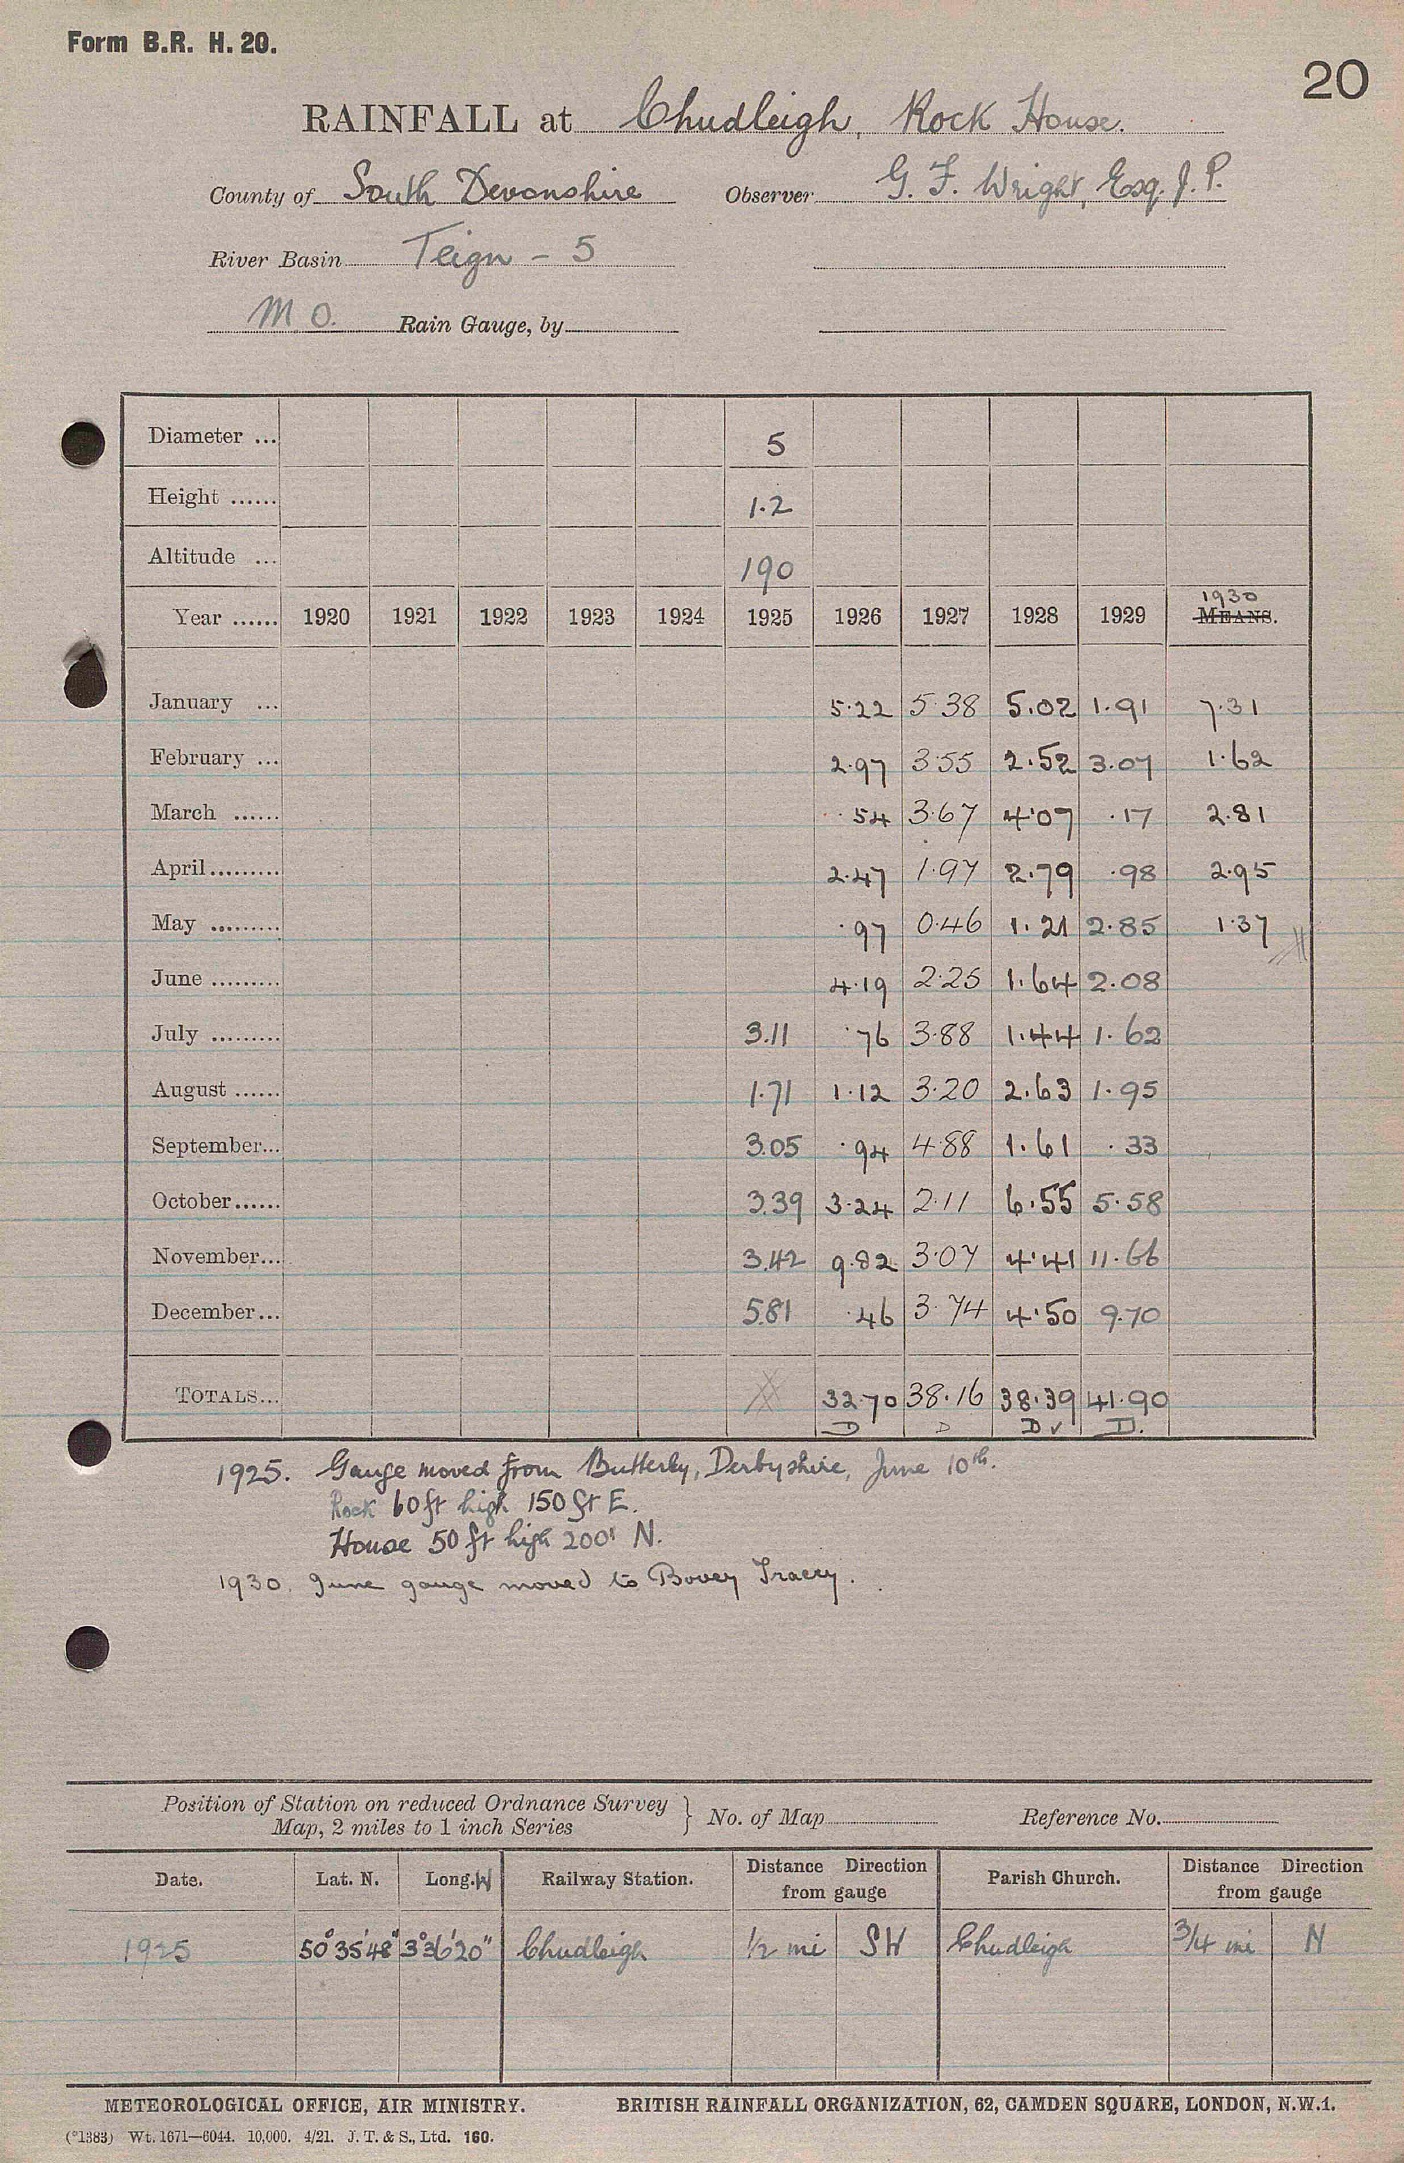 Form B.R. H. 20.
20
RAINFALL at Chudleigh, Rock House.
County of South Devonshire Observer G. F. Wright, Esq. J. P.
River Basin Teign - 5
M. O. Rain Gauge, by
Diameter ... 5
Height ...... 1.2
Altitude ... 190
1930
Year ...... 1920 1921 1922 1923 1924 1925 1926 1927 1928 1929 MEANS.
January ... 5.22 5.38 5.02 1.91 7.31
February ... 2.97 3.55 2.52 3.07 1.62
March ...... .54 3.67 4.07 .17 2.81
April......... 2.47 1.97 2.79 .98 2.95
May ......... .97 0.46 1.21 2.85 1.37
June ......... 4.19 2.25 1.64 2.08
July ......... 3.11 .76 3.88 1.44 1.62
August ...... 1.71 1.12 3.20 2.63 1.95
September... 3.05 .94 4.88 1.61 .33
October...... 3.39 3.24 2.11 6.55 5.58
November... 3.42 9.82 3.07 4.41 11.66
December... 5.81 .46 3.74 4.50 9.70
TOTALS... 32.70 38.16 38.39 41.90
D D D ✓ D.
1925. Gauge moved from Butterley, Derbyshire, June 10th.
Rock 60 ft high 150 ft E.
House 50 ft high 200' N.
1930. June gauge moved to Bovey Tracey.
Position of Station on reduced Ordnance Survey
Map, 2 miles to 1 inch Series } No. of Map Reference No.
Date. Lat. N. Long. W Railway Station. Distance Direction from gauge Parish Church. Distance Direction from gauge
1925 50° 35' 48" 3° 36' 20" Chudleigh 1/2 mi SW Chudleigh 3/4 mi N
METEOROLOGICAL OFFICE, AIR MINISTRY. BRITISH RAINFALL ORGANIZATION, 62, CAMDEN SQUARE, LONDON, N.W.1.
(*1383) Wt. 1671—6044. 10,000. 4/21. J. T. & S., Ltd. 160.